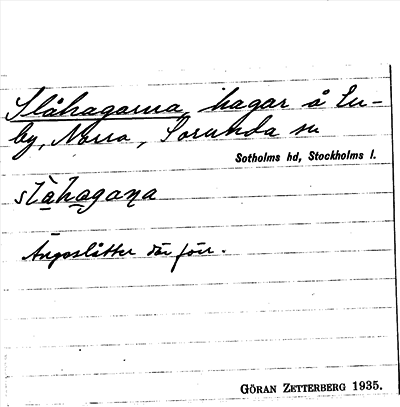 Slåhagarna, hagar å En-
by, Norra, Sorunda sn
Sotholms hd, Stockholms l.
slåhagaṇa
Ängaslåtter där förr.
GÖRAN ZETTERBERG 1935.